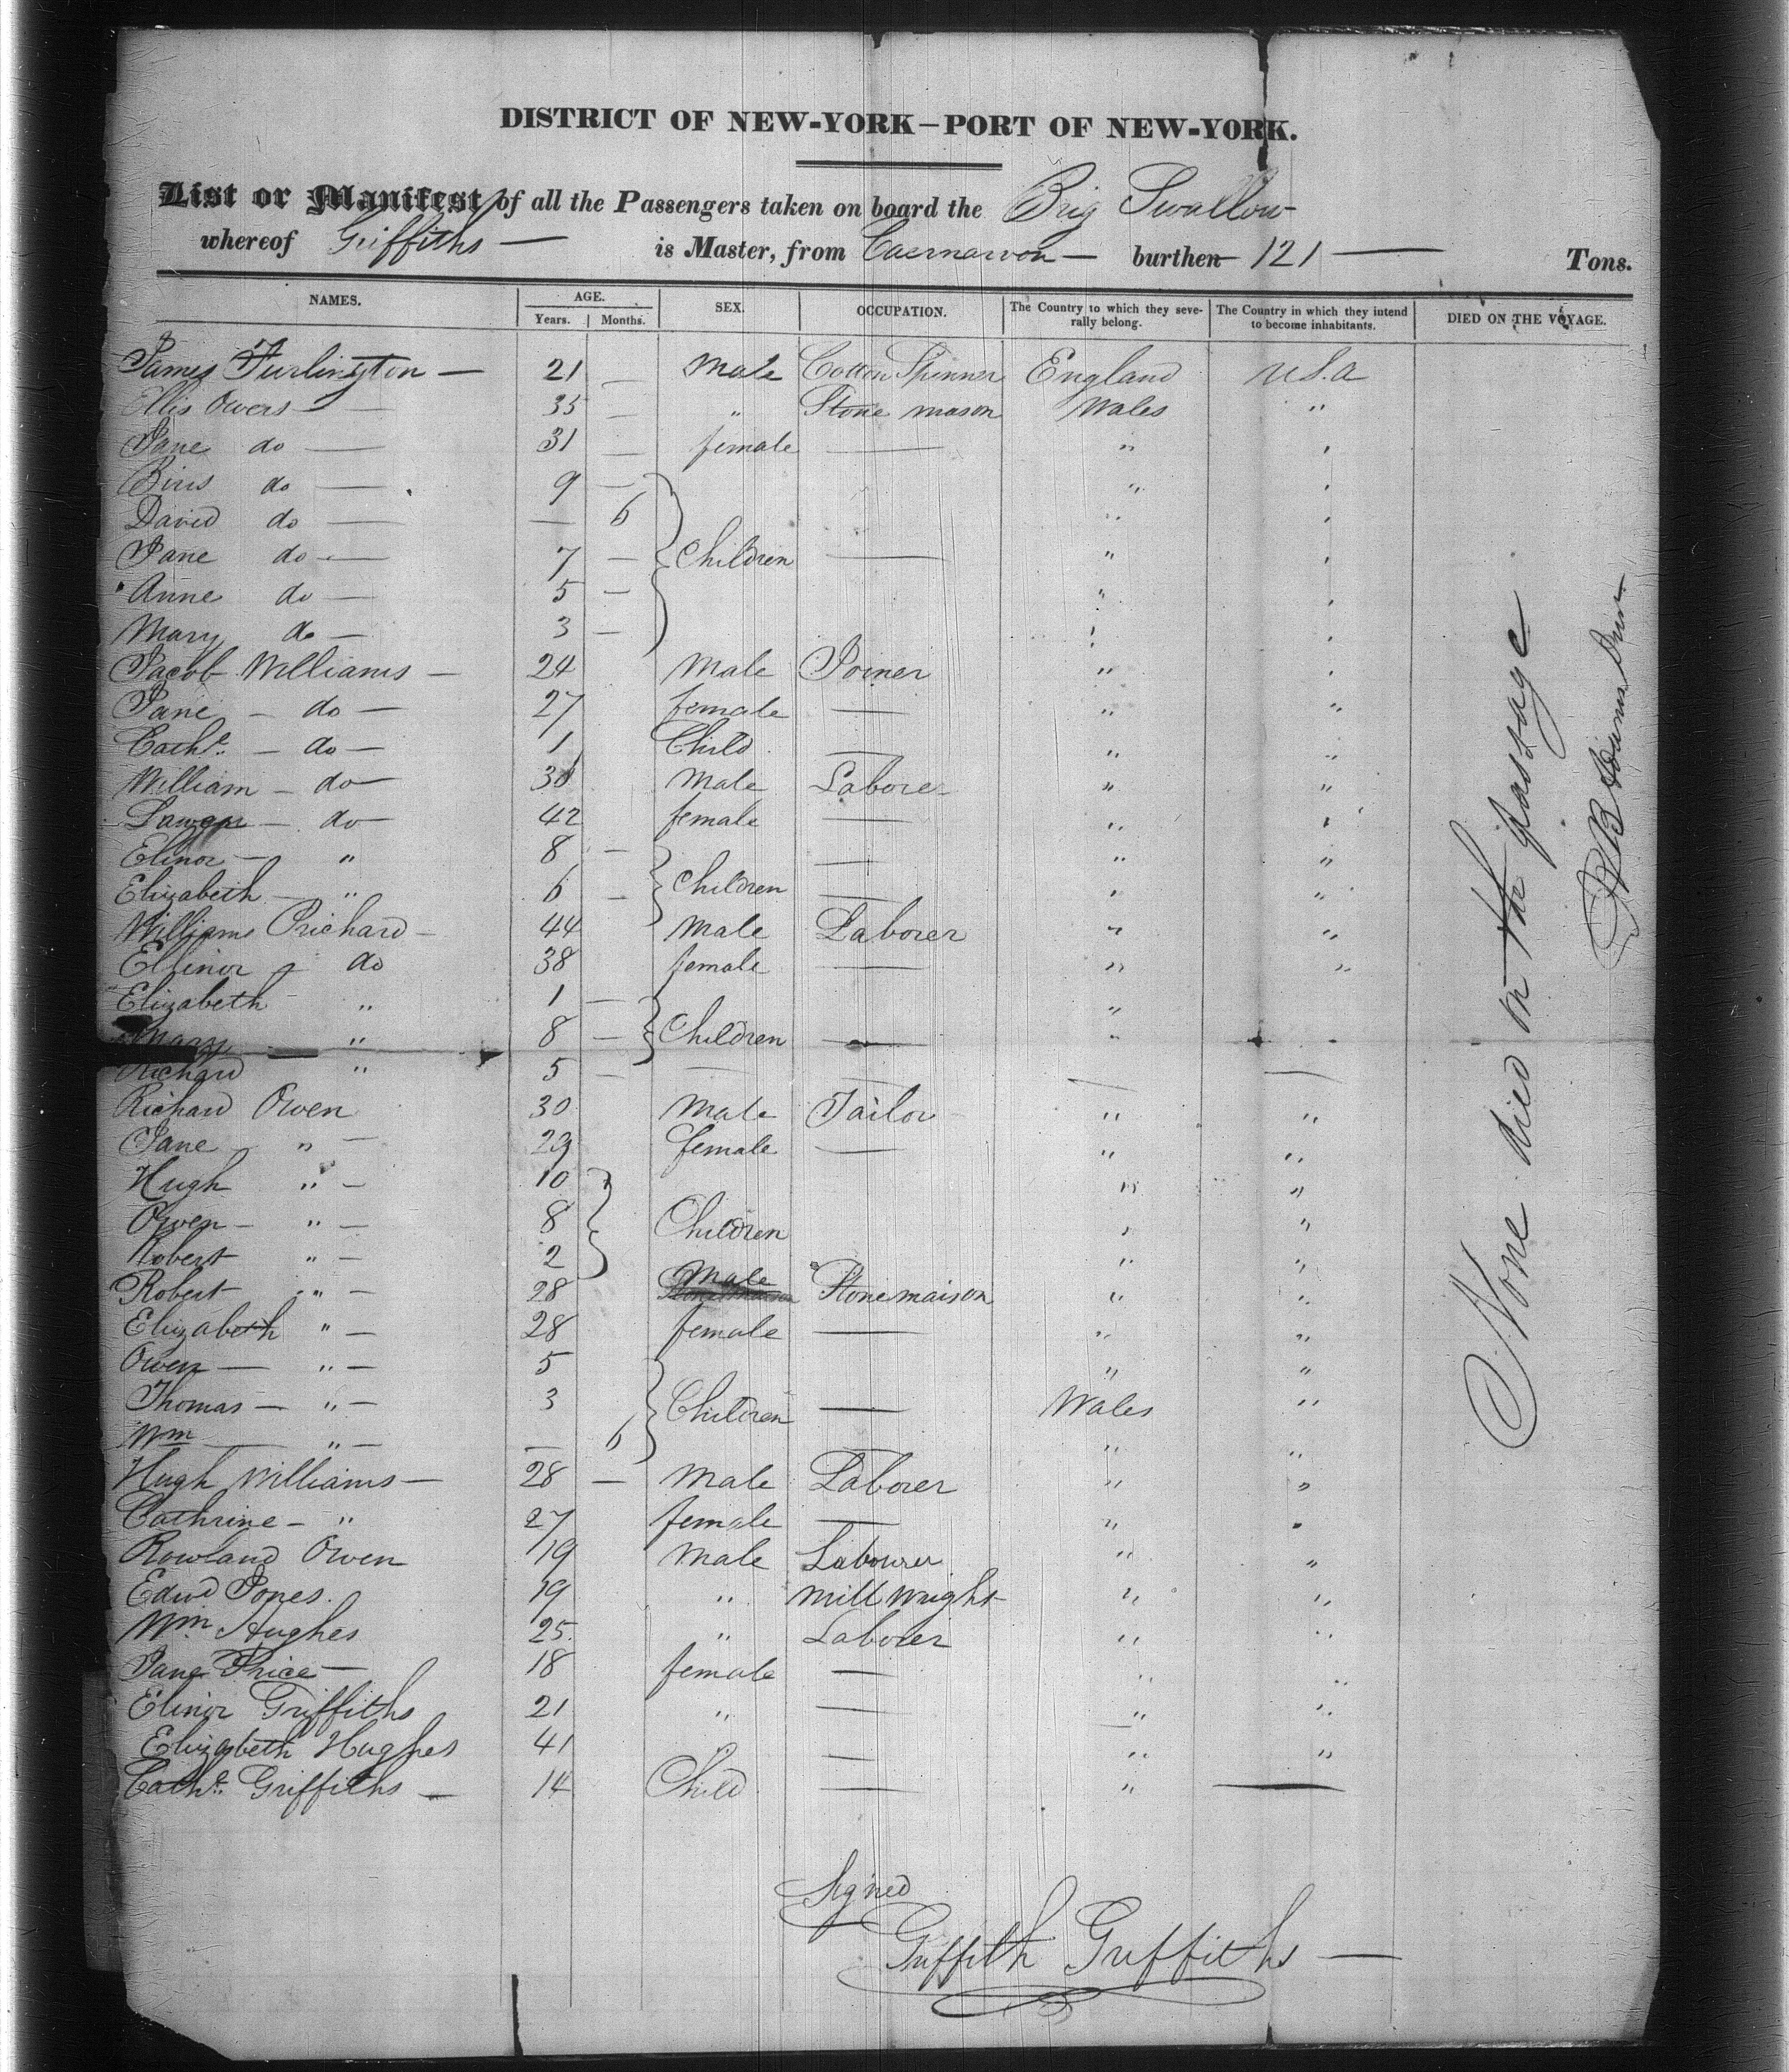 DISTRICT OF NEW-YORK–PORT OF NEW-YORK.
List or Manifest of all the Passengers taken on board the Brig Swallow
whereof Griffiths — is Master, from Caernarvon — burthen 121 — Tons.
NAMES. AGE. Years. Months. SEX. OCCUPATION. The Country to which they severally belong. The Country in which they intend to become inhabitants. DIED ON THE VOYAGE.
James Turlington — 21 — Male Cotton Spinner England U.S.a
Ellis Owens — 35 — " Stone mason Wales "
Jane do — 31 — female — " "
do — 9 — " "
David do — — 6 " "
Jane do — 7 — Children — " "
Anne do — 5 — " "
Mary do — 3 — " "
Jacob Williams — 24 Male Joiner " "
Jane — do — 27 female — " "
Cathe — do — 1 Child — " "
William — do — Male Laborer " "
do — 42 female — " "
Elinor — " 8 — — " "
Elizabeth — " 6 — Children — " "
Williams Prichard — 44 Male Laborer " "
Ellinor do 38 female — " "
Elizabeth " 1 — "
Mary " 8 — Children — " "
Richard " 5 — — — — —
Richard Owen 30 Male Tailor " "
Jane " — 29 female — " "
Hugh " — 10 " "
Owen — " — 8 Children " "
Robert " — 2 " "
Robert " — 28 Male Stonemaison " "
Elizabeth " — 28 female — " "
Owen — " — 5 " "
Thomas — " — 3 Children — Wales "
Wm — " — — 6 — " "
Hugh Williams — 28 — Male Laborer " "
Cathrine — " 27 female — " "
Rowland Owen 19 Male Labourer " "
Edwd Jones. 19 " Mill wright " "
Wm Hughes 25. " Laborer " "
Jane Price — 18 female — " "
Elinor Griffiths 21 " — " "
Elizabeth Hughes 41 " — " "
Cathe Griffiths — 14 Child — " —
None died on the passage
Signed
Griffith Griffiths —